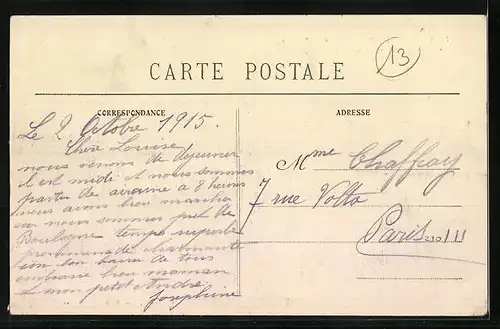 13
CARTE POSTALE
CORRESPONDANCE
ADRESSE
Le 2 Octobre 1915.
Chère Louise
nous venons de dejeuner
il est midi et nous sommes
partie de airaine a 8 heures
nous avons bien marcher
car nous sommes pret de
Boulogne temps superbe
prommenade charmante
un bon baiser de tous
embrasse bien maman
& mon petit André
Josephine
Mme Chaffray
7 rue Volta
Paris III